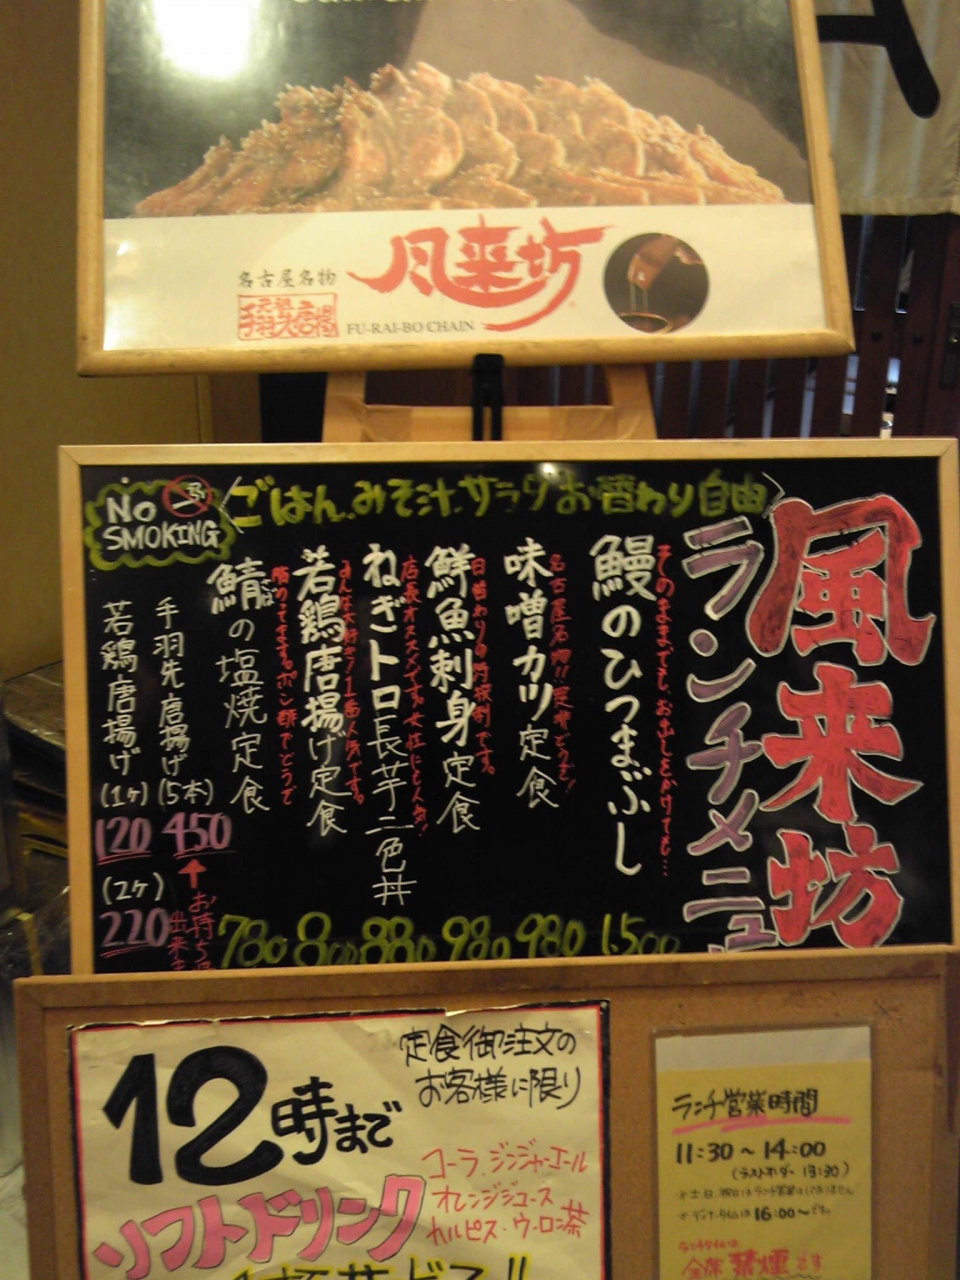 名古屋名物
元祖手羽先唐揚
風来坊
FU-RAI-BO CHAIN
風来坊
ランチメニュ
(ごはん、みそ汁、サラダお替わり自由)
NO
SMOKING
そのままでも、お出しをかけても…
鰻のひつまぶし
1,500
名古屋名物!!是非どうぞ!
味噌カツ定食
980
日替わりの特撰刺です。
鮮魚刺身定食
980
店長オススメです。女性にも人気!
ねぎトロ長芋二色丼
880
みんな大好き!1番人気です。
若鶏唐揚げ定食
800
脂のってます。ポン酢でどうぞ
鯖の塩焼定食
780
手羽先唐揚げ
(5本)
450
お持ち
出来ま
若鶏唐揚げ
(1ヶ)
120
(2ヶ)
220
定食御注文の
お客様に限り
12時まで
ソフトドリンク
コーラ、ジンジャーエール
オレンジジュース
カルピス・ウーロン茶
ランチ営業時間
11:30〜14:00
(ラストオーダー 13:30)
※土、日、祝日はランチ営業はしておりません
※ディナータイムは16:00〜です。
ランチタイムは
全席禁煙です